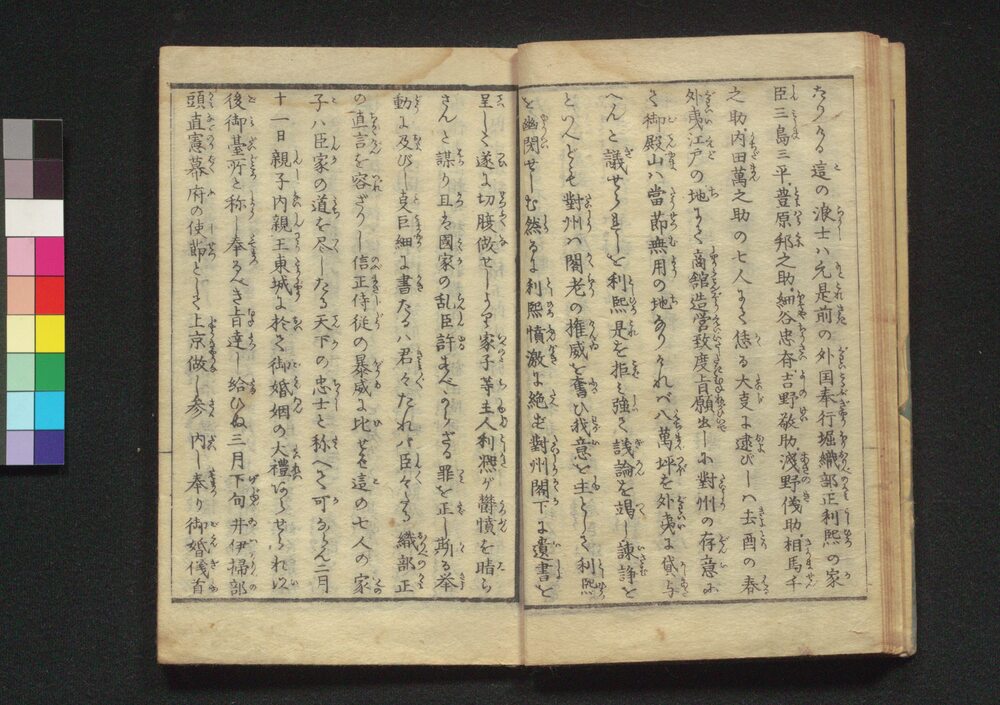 たりける這の浪士ハ元是前の外国奉行堀織部正利熙の家
臣三島三平豊原邦之助細谷忠斎吉野敬助浅野儀助相馬千
之助内田萬之助の七人にて倐る大変に逮びしハ去酉の春
外夷江戸の地にて商館造営致度旨願出しに對州の存意に
て御殿山ハ當節無用の地なりけれバ八萬坪を外夷に貸与
へんと議せられしを利熙是を拒み強く議論を竭し諫諍を
といへども對州ハ閣老の権威を奮ひ我意を主として利熙
を幽閉せしむ然るに利熙憤激に絶ず對州閣下に遺書を
呈して遂に切腹做せしより家子等主人利熙ゲ欝憤を晴ら
さんと謀り且は國家の乱臣許すべからざる罪を正し斯る挙
動に及びし支巨細に書たるハ君々たれバ臣々たる織部正
の直言を容ざりし信正侍従の暴威に比せバ這の七人の家
子ハ臣家の道を尽したる天下の忠士と称へて可ならん二月
十一日親子内親王東城に於て御婚姻の大禮行ハせられ以
後御臺所と称し奉るべき旨達し給ひぬ三月下旬井伊掃部
頭直憲幕府の使節として上京做し参内し奉り御婚儀首